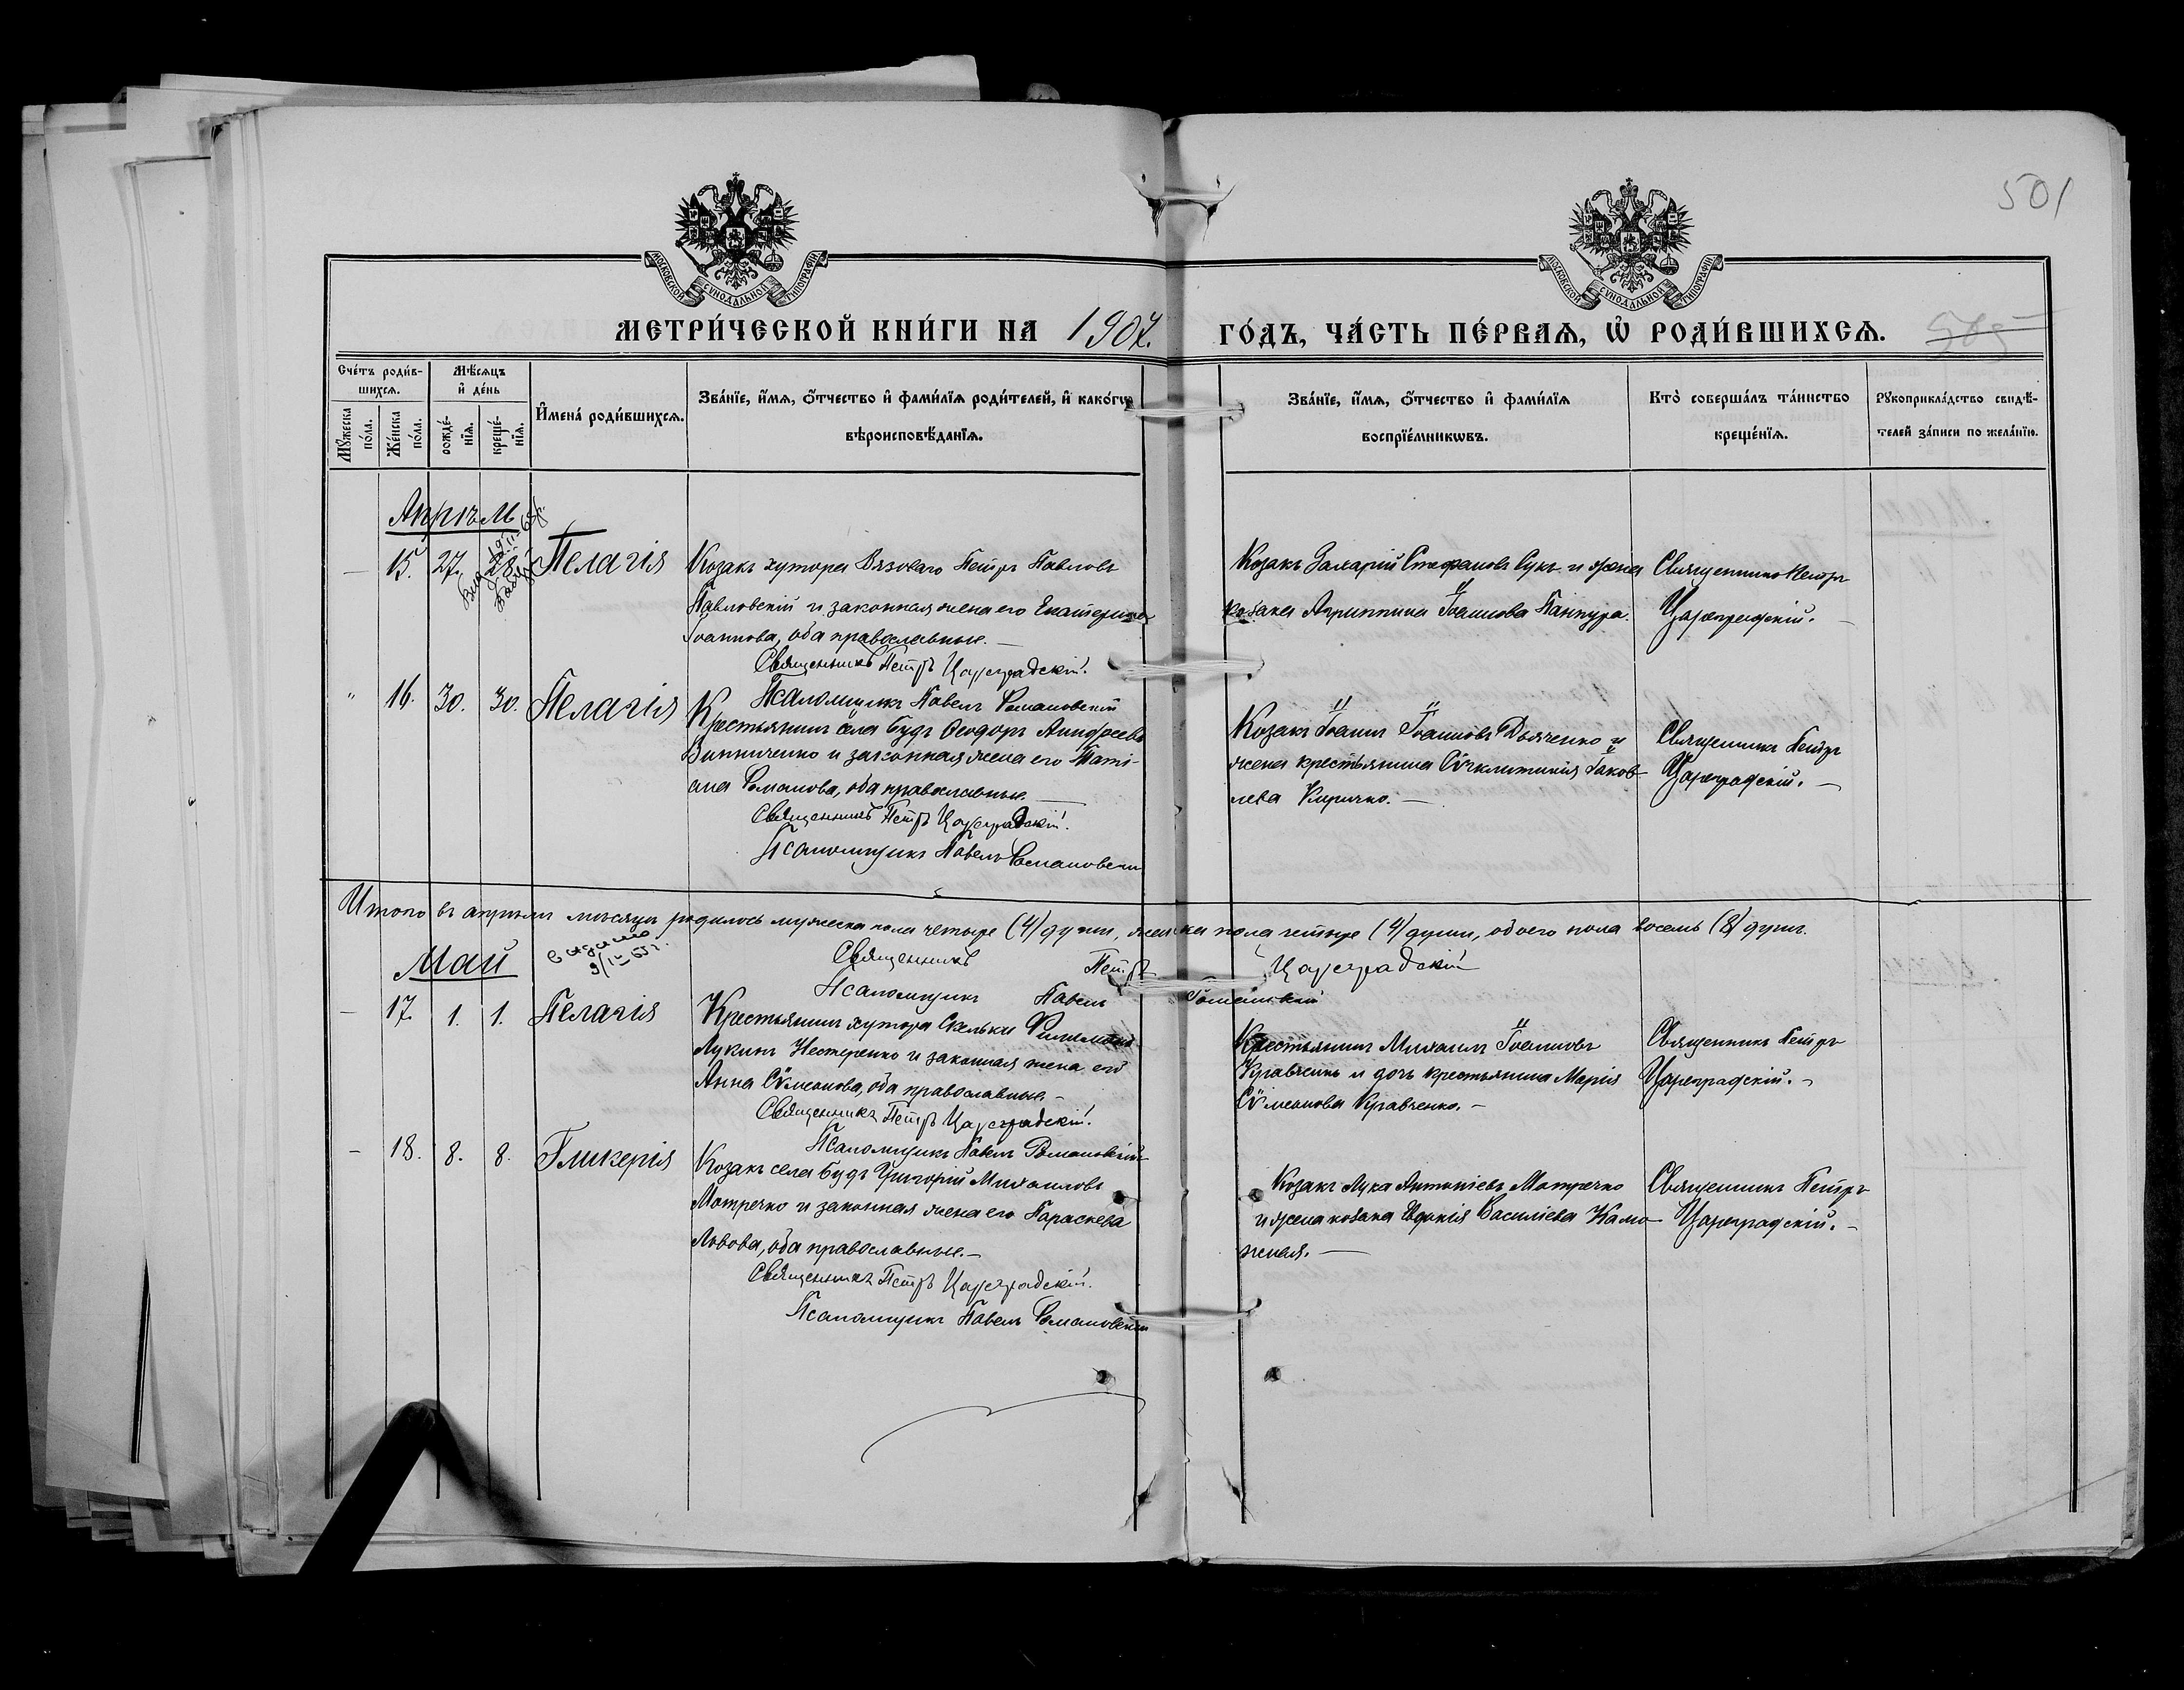 501
МОСКОВСКОЙ СУНОДАЛЬНОЙ ТИПОГРАФІИ
МОСКОВСКОЙ СУНОДАЛЬНОЙ ТИПОГРАФІИ
МЕТРИ́ЧЕСКОЙ КНИ́ГИ НА 1907. ГО́ДЪ, ЧА́СТЬ ПЕ́РВАѦ, Ѡ҆ РОДИ́ВШИХСѦ.
Сче́тъ роди́вшихсѧ.
Мѣ́сѧцъ и҆ де́нь
Мꙋ́жеска по́ла.
Же́нска по́ла.
рожде́нїѧ.
креще́нїѧ.
И҆мена̀ роди́вшихсѧ.
Зва́нїе, и҆́мѧ, ѻ҆́тчество и҆ фами́лїѧ роди́телей, и҆ како́гѡ
вѣроисповѣ́данїѧ.
Зва́нїе, и҆́мѧ, ѻ҆́тчество и҆ фами́лїѧ
воспрїе́мникѡвъ.
Кто̀ соверша́лъ та́инство
креще́нїѧ.
Рꙋкоприкла́дство свидѣ́телей за́писи по жела́нїю.
Апрѣль
15. 27. 28. Пелагія
Козакъ хутора Вязоваго Петръ Павловъ
Павловскій и законная жена его Екатерина
Іоаннова, оба православные.—
Священникъ Петръ Цареградскій.
Псаломщикъ Павелъ Романовскій
Козакъ Захарій Стефановъ Сукъ и жена
козака Агриппина Іоаннова Панкура.
Священникъ Петръ
Цареградскій.
" 16. 30. 30. Пелагія
Крестьянинъ села Будъ Ѳеодоръ Андреевъ
Винниченко и законная жена его Тати-
ана Романова, оба православные.—
Священникъ Петръ Цареградскій.
Псаломщикъ Павелъ Романовскій
Козакъ Іоаннъ Іоанновъ Дьяченко и
жена крестьянина Сѵнклитикія Іаков-
лева Киричко.—
Священникъ Петръ
Цареградскій.—
Итого въ апрѣлѣ мѣсяцѣ родилось мужеска пола четыре (4) души, женска пола четыре (4) души, обоего пола восемь (8) душъ.
Священникъ Петръ Цареградскій
Псаломщикъ Павелъ
Май
— 17. 1. 1. Пелагія
Крестьянинъ хутора Скельки Филимонъ
Лукинъ Нестеренко и законная жена его
Анна Сѵмеонова, оба православные.—
Священникъ Петръ Цареградскій.
Псаломщикъ Павелъ Романовскій
Крестьянинъ Михаилъ Іоанновъ
Кравченко и дочь крестьянина Марія
Сѵмеонова Кравченко.—
Священникъ Петръ
Цареградскій.—
— 18. 8. 8. Гликерія
Козакъ села Будъ Григорій Михаиловъ
Мотречко и законная жена его Параскева
Львова, оба православные.—
Священникъ Петръ Цареградскій.
Псаломщикъ Павелъ Романовскій
Козакъ Лука Антоніевъ Мотречко
и жена козака Евдокія Василіева Кало-
жная.—
Священникъ Петръ
Цареградскій.—